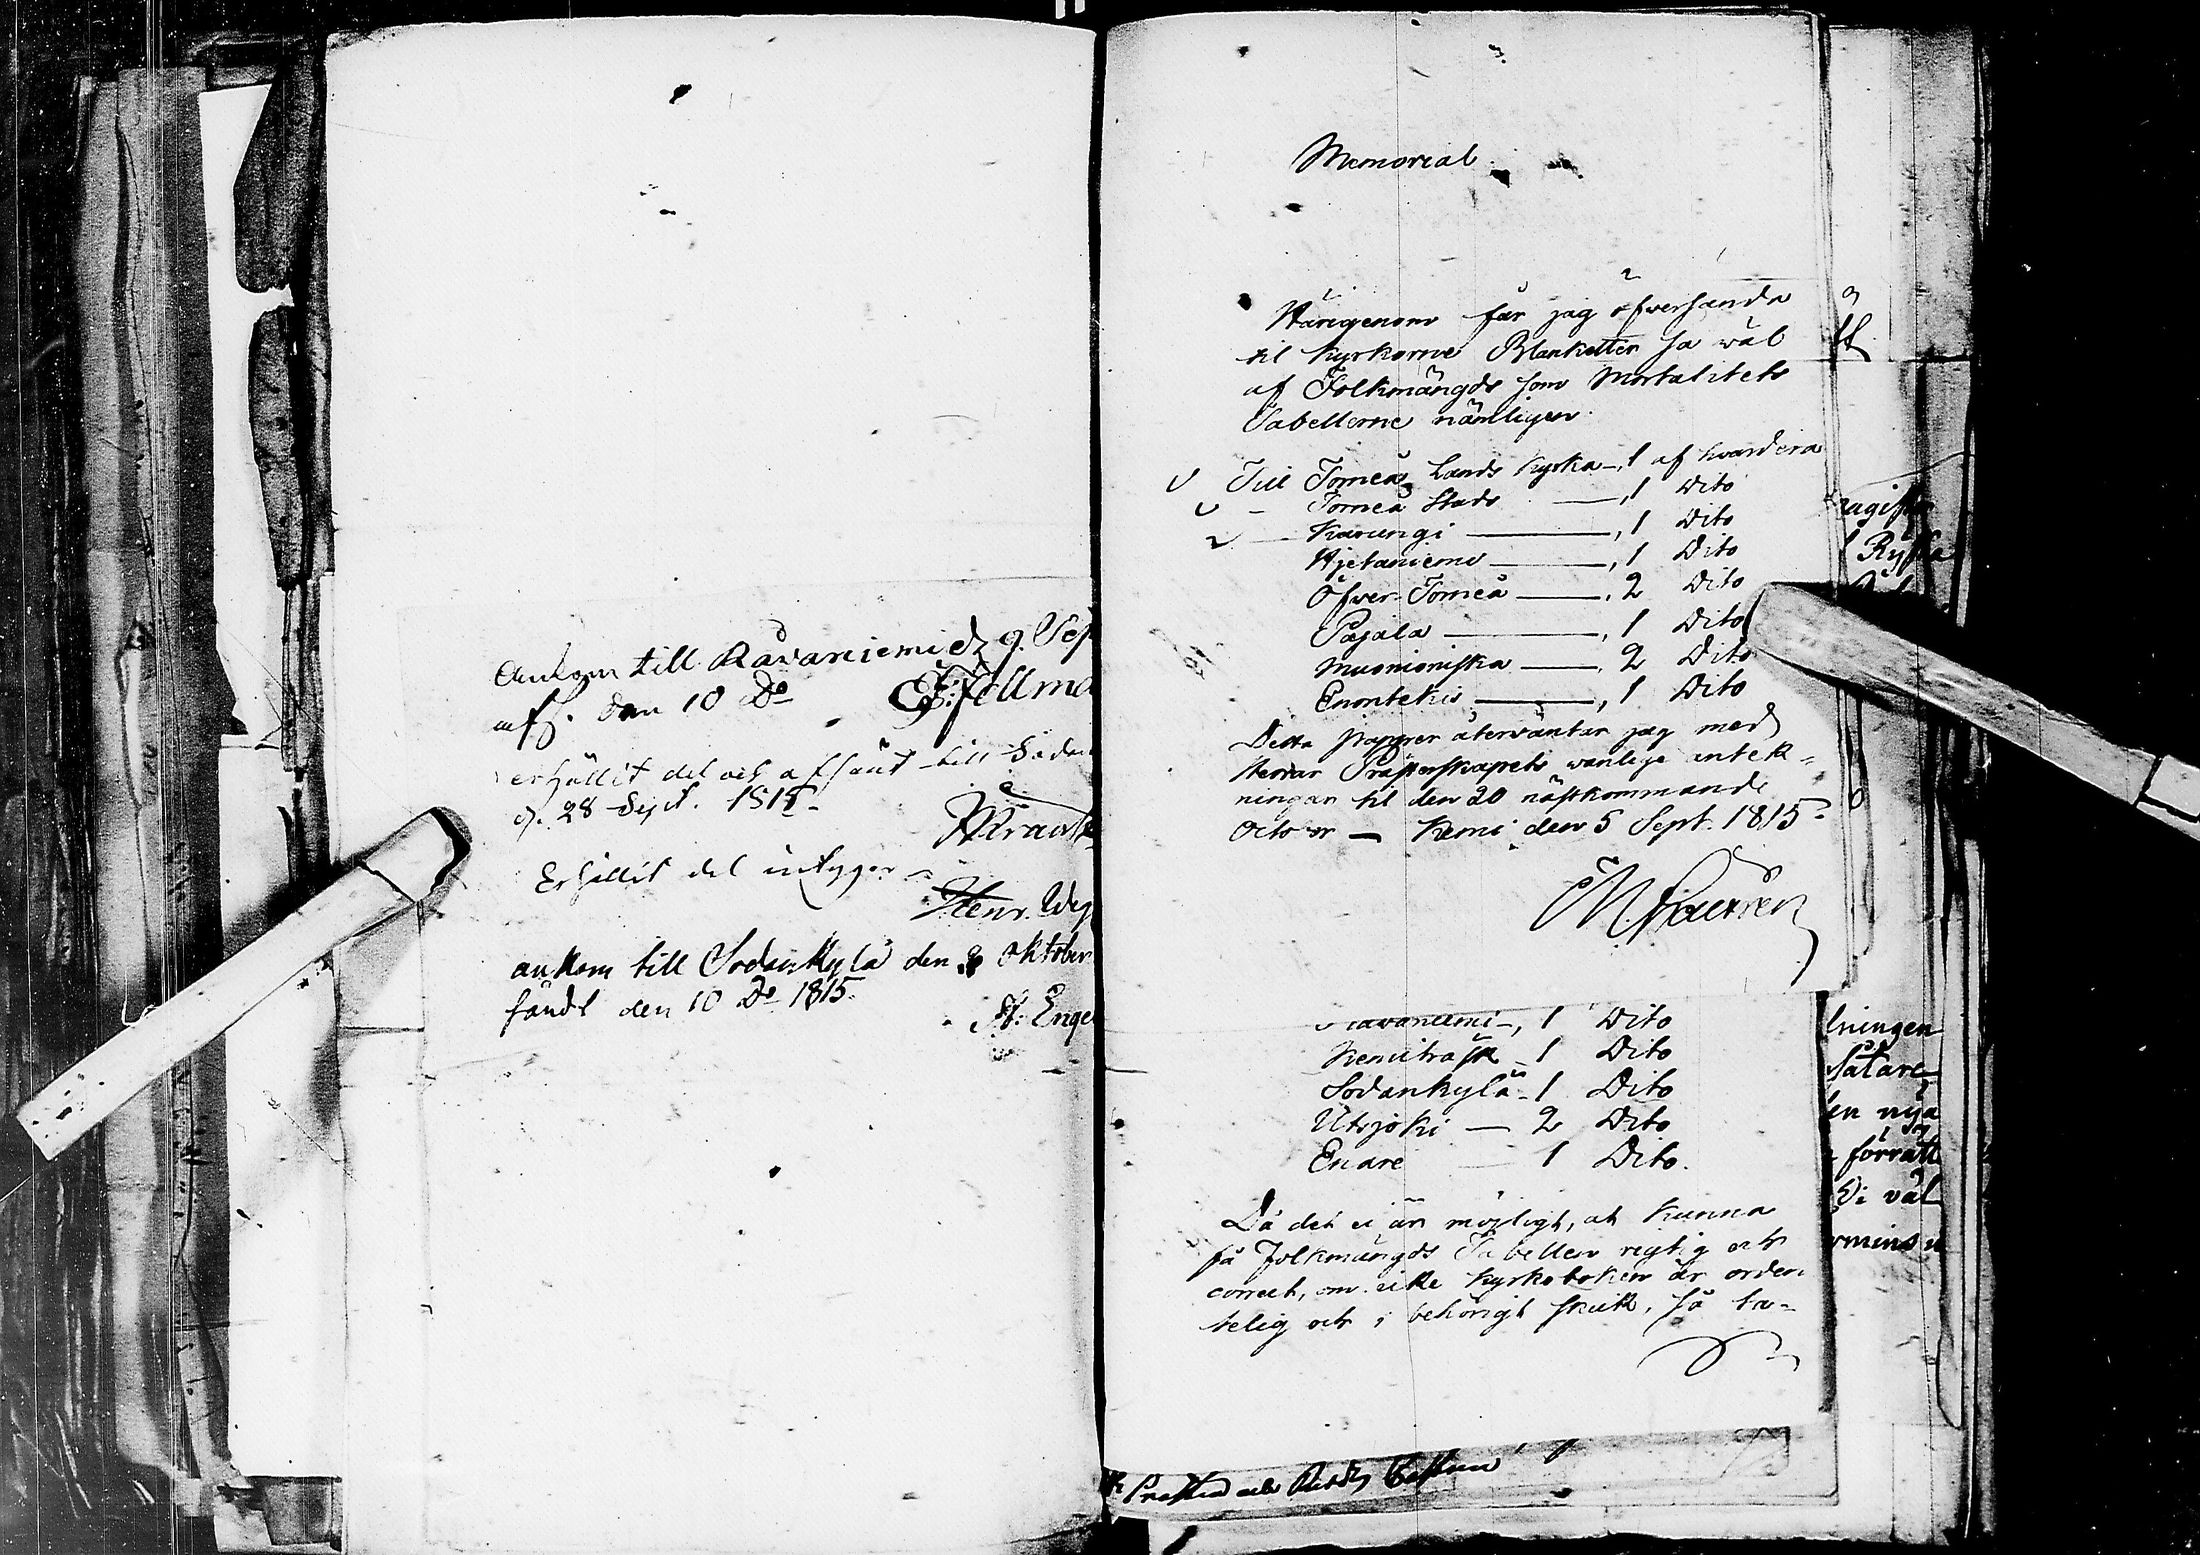 Ankom till Råvaniemi d 9. Sep
afs. den 10 Do
erhållit det och afsänt till Sodan
d. 28 Sept. 1815
Erhållit det intygar
Henr. Weg
ankom till Sodankylä den 8 Oktober
sändt den 10 Do 1815.
Enge
Memorial
Härigenom får jag öfwersända
til Kyrkorne Blanketter så wäl
af Folkmängds som Mortalitets
Tabellerne nämligen
Till Torneå Lands Kyrka 1 af hvardera
Torneå Stads 1 Dito
Karungi 1 Dito
Hjetaniemi 1 Dito
Öfwer-Torneå 2 Dito
Pajala 1 Dito
Muonioniska 2 Dito
Enontekis 1 Dito
Detta papper återväntar jag med
Herrar Prästerskapets wanlige antek=
ningar til den 20 nästkommande
Kemi den 5 Sept. 1815
ravaniemi 1 Dito
Kemiträsk 1 Dito
Sodankylä 1 Dito
Utsjoki 2 Dito
Enare 1 Dito.
Då det ei är möjligt, at kunna
få Folkmängds Tabellen regtig och
correct, om icke Kyrkoboken är orden
telig och i behörigt skick, så ta-
lningen
en nya
förrätt
Di väl
rmins